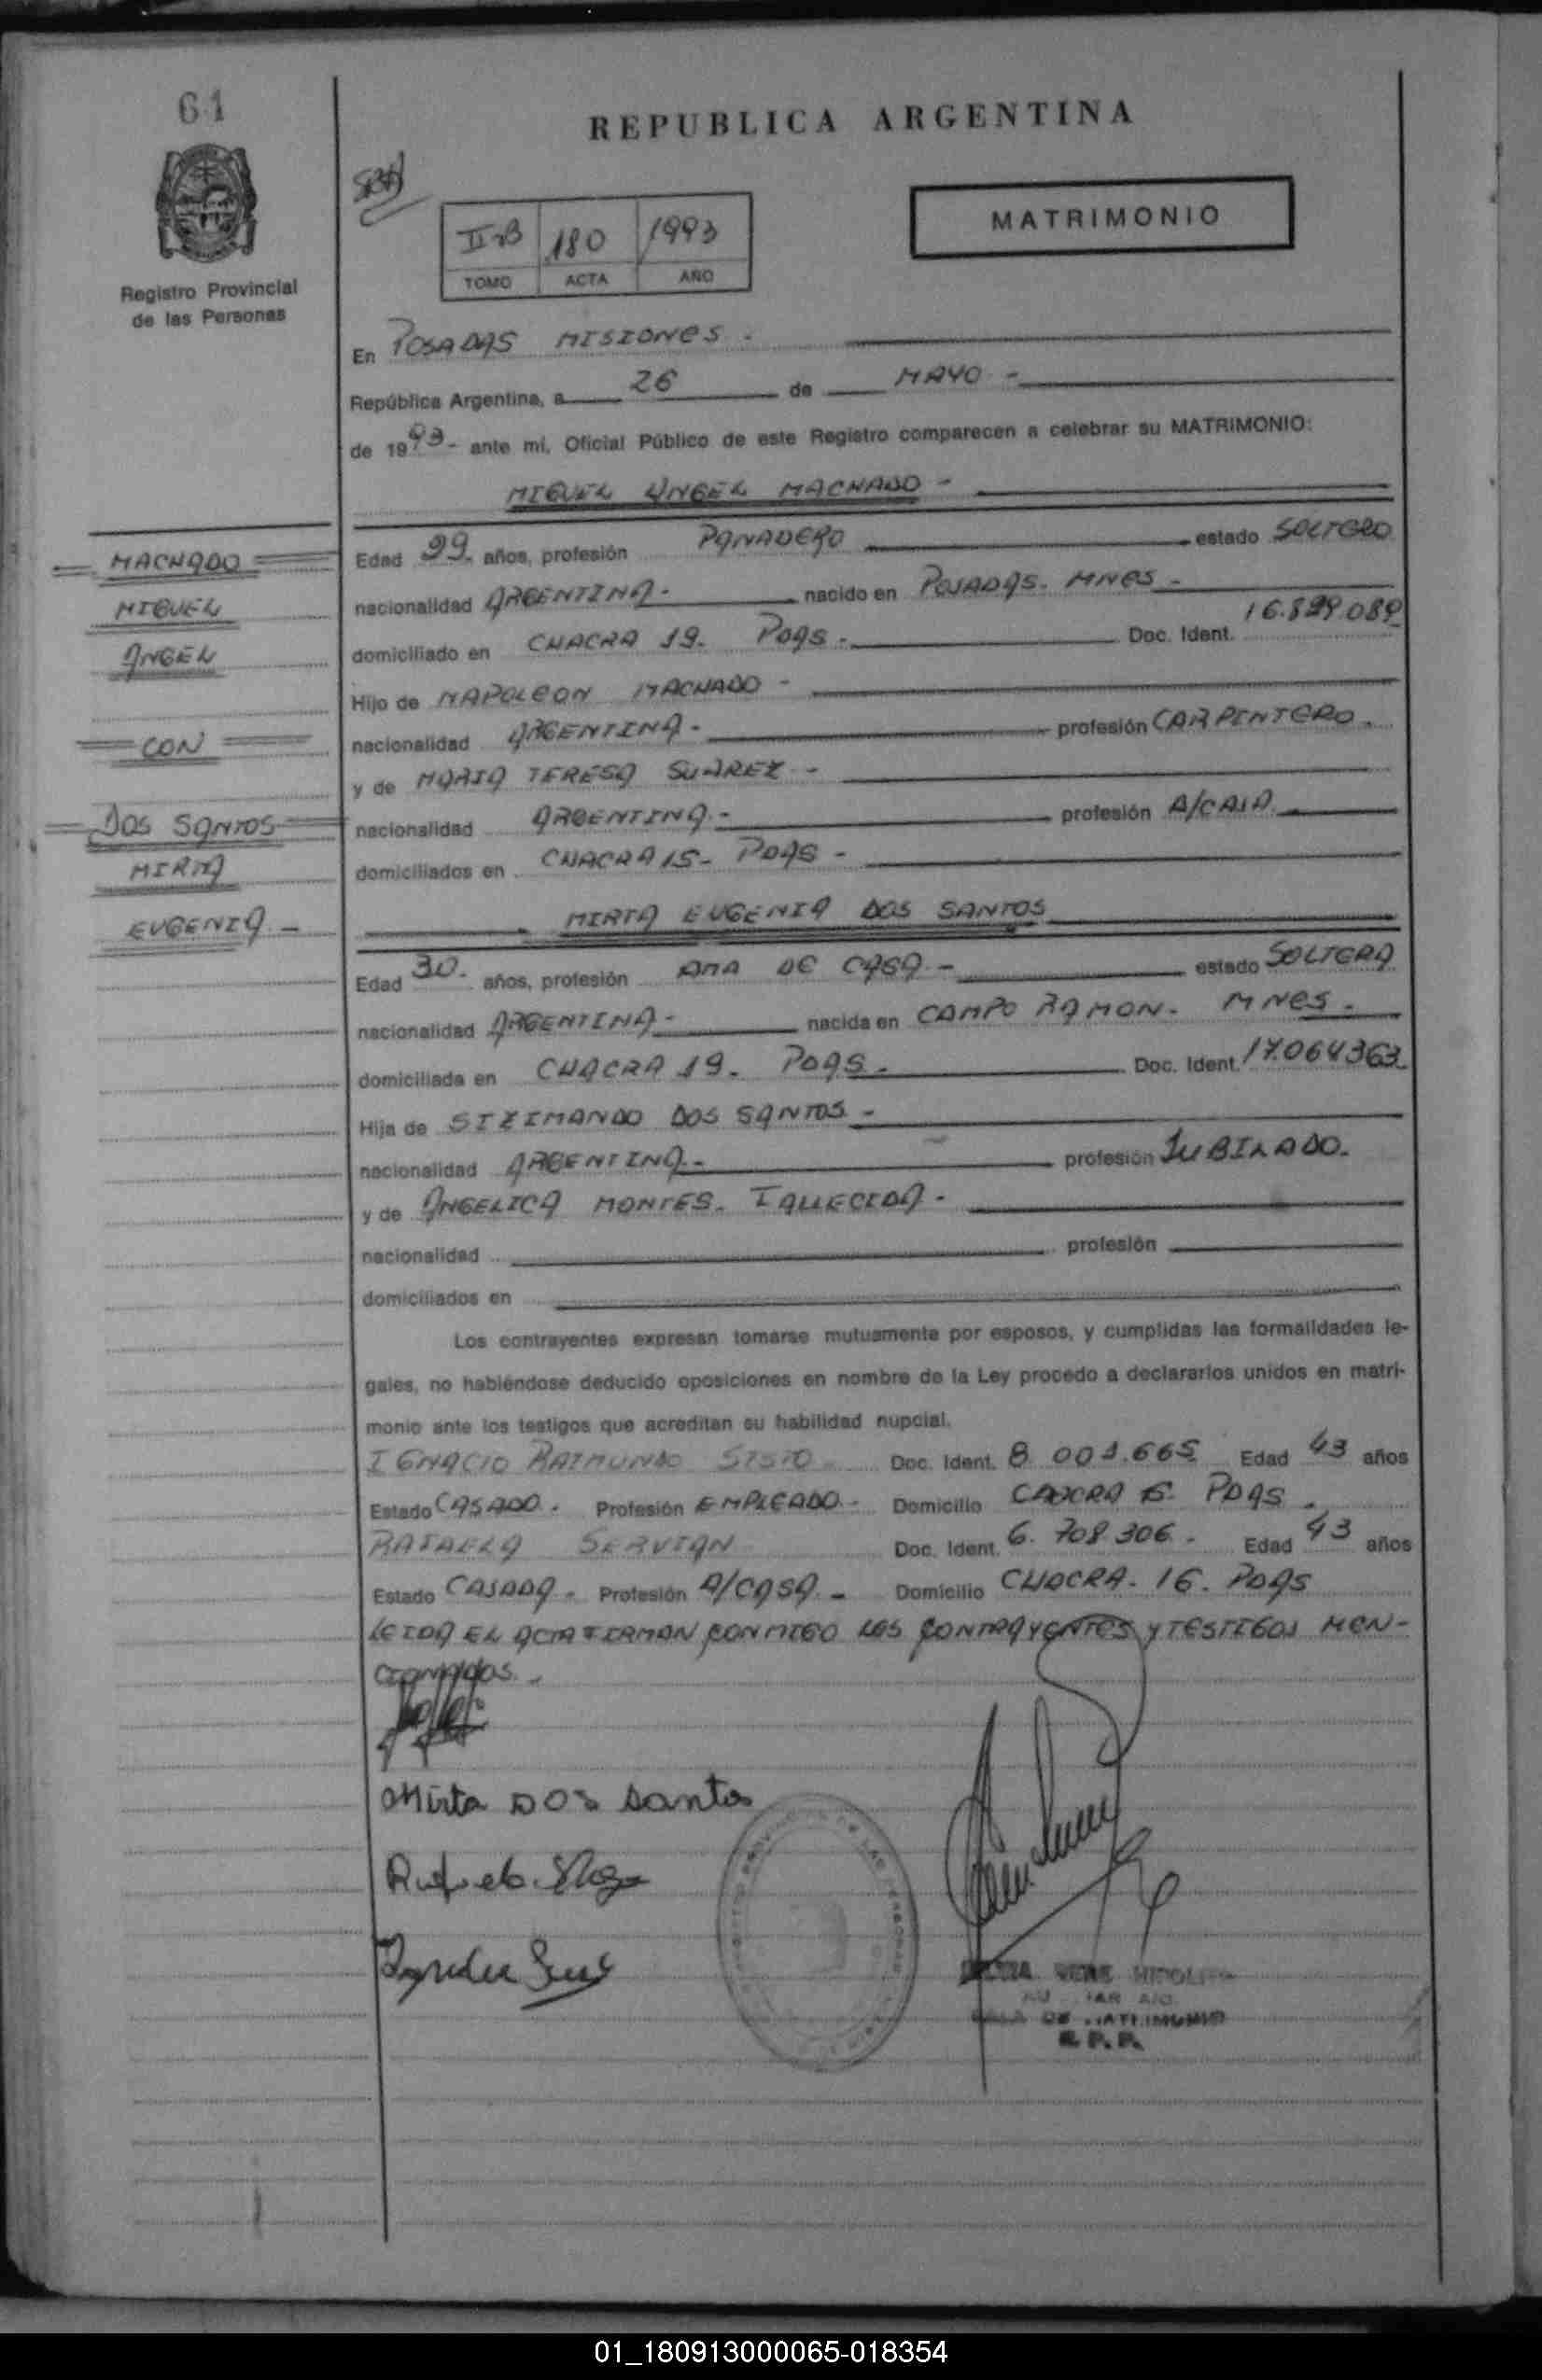 61
REPUBLICA ARGENTINA
II-B 180 1993
TOMO ACTA AÑO
MATRIMONIO
Registro Provincial
de las Personas
En POSADAS MISIONES.
República Argentina, a 26 de MAYO -
de 1993- ante mi, Oficial Público de este Registro comparecen a celebrar su MATRIMONIO:
MIGUEL ANGEL MACHADO -
MACHADO
MIGUEL
ANGEL
CON
DOS SANTOS
MIRTA
EUGENIA -
Edad 29. años, profesión PANADERO estado SOLTERO
nacionalidad ARGENTINA. nacido en POSADAS. MNES -
domiciliado en CHACRA 19. PDAS. Doc. Ident. 16.829.089
Hijo de NAPOLEON MACHADO -
nacionalidad ARGENTINA - profesión CARPINTERO.
y de MARIA TERESA SUAREZ -
nacionalidad ARGENTINA - profesión A/CASA
domiciliados en CHACRA 15- PDAS -
MIRTA EUGENIA DOS SANTOS
Edad 30. años, profesión AMA DE CASA - estado SOLTERA
nacionalidad ARGENTINA - nacida en CAMPO RAMON. MNES.
domiciliada en CHACRA 19. PDAS. Doc. Ident. 17.064363
Hija de SIZIMANDO DOS SANTOS -
nacionalidad ARGENTINA - profesión JUBILADO.
y de ANGELICA MONTES. FALLECIDA -
nacionalidad profesión
domiciliados en
Los contrayentes expresan tomarse mutuamente por esposos, y cumplidas las formalidades le-
gales, no habiéndose deducido oposiciones en nombre de la Ley procedo a declararlos unidos en matri-
monio ante los testigos que acreditan su habilidad nupcial.
IGNACIO RAIMUNDO Doc. Ident. 8 001.665 Edad 43 años
Estado CASADO. Profesión EMPLEADO - Domicilio PDAS.
RAFAELA SERVIAN Doc. Ident. 6.708 306. Edad 43 años
Estado CASADA. Profesión A/CASA - Domicilio CHACRA. 16. PDAS
LEIDA EL ACTA FIRMAN CONMIGO LOS CONTRAYENTES Y TESTIGOS MEN-
CIONADOS.
Mirta DOS Santos
SALA DE MATRIMONIO
R. P. P.
01_180913000065-018354